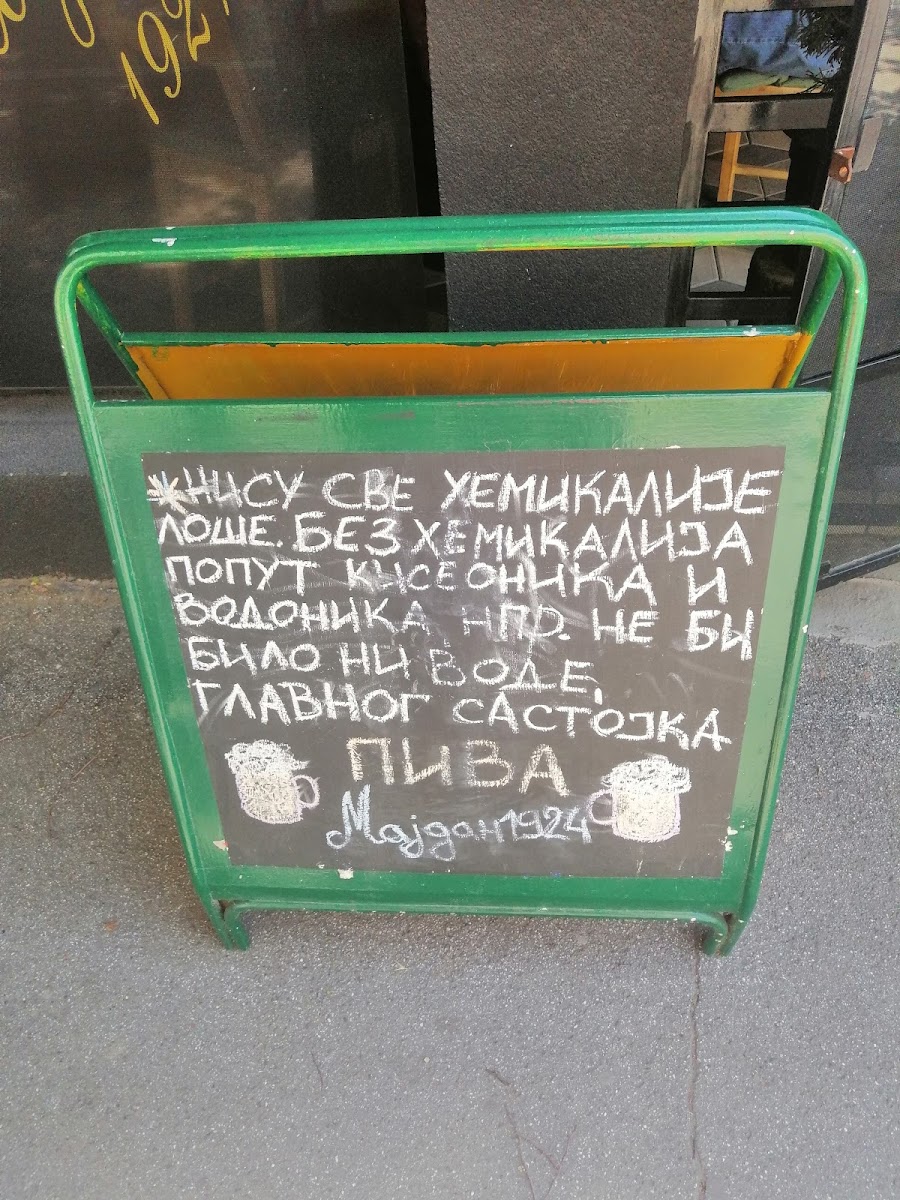 192
*НИСУ СВЕ ХЕМИКАЛИЈЕ
ЛОШЕ. БЕЗ ХЕМИКАЛИЈА
ПОПУТ КИСЕОНИКА И
ВОДОНИКА НПР. НЕ БИ
БИЛО НИ ВОДЕ,
ГЛАВНОГ САСТОЈКА
ПИВА
Мајдан 1924